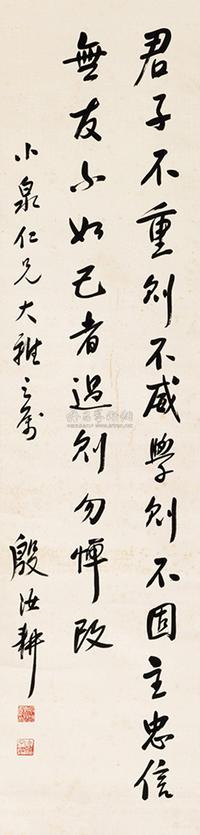 君子不重則不威學則不固主忠信
無友不如己者過則勿憚改
小泉仁兄大雅之属
殷汝耕